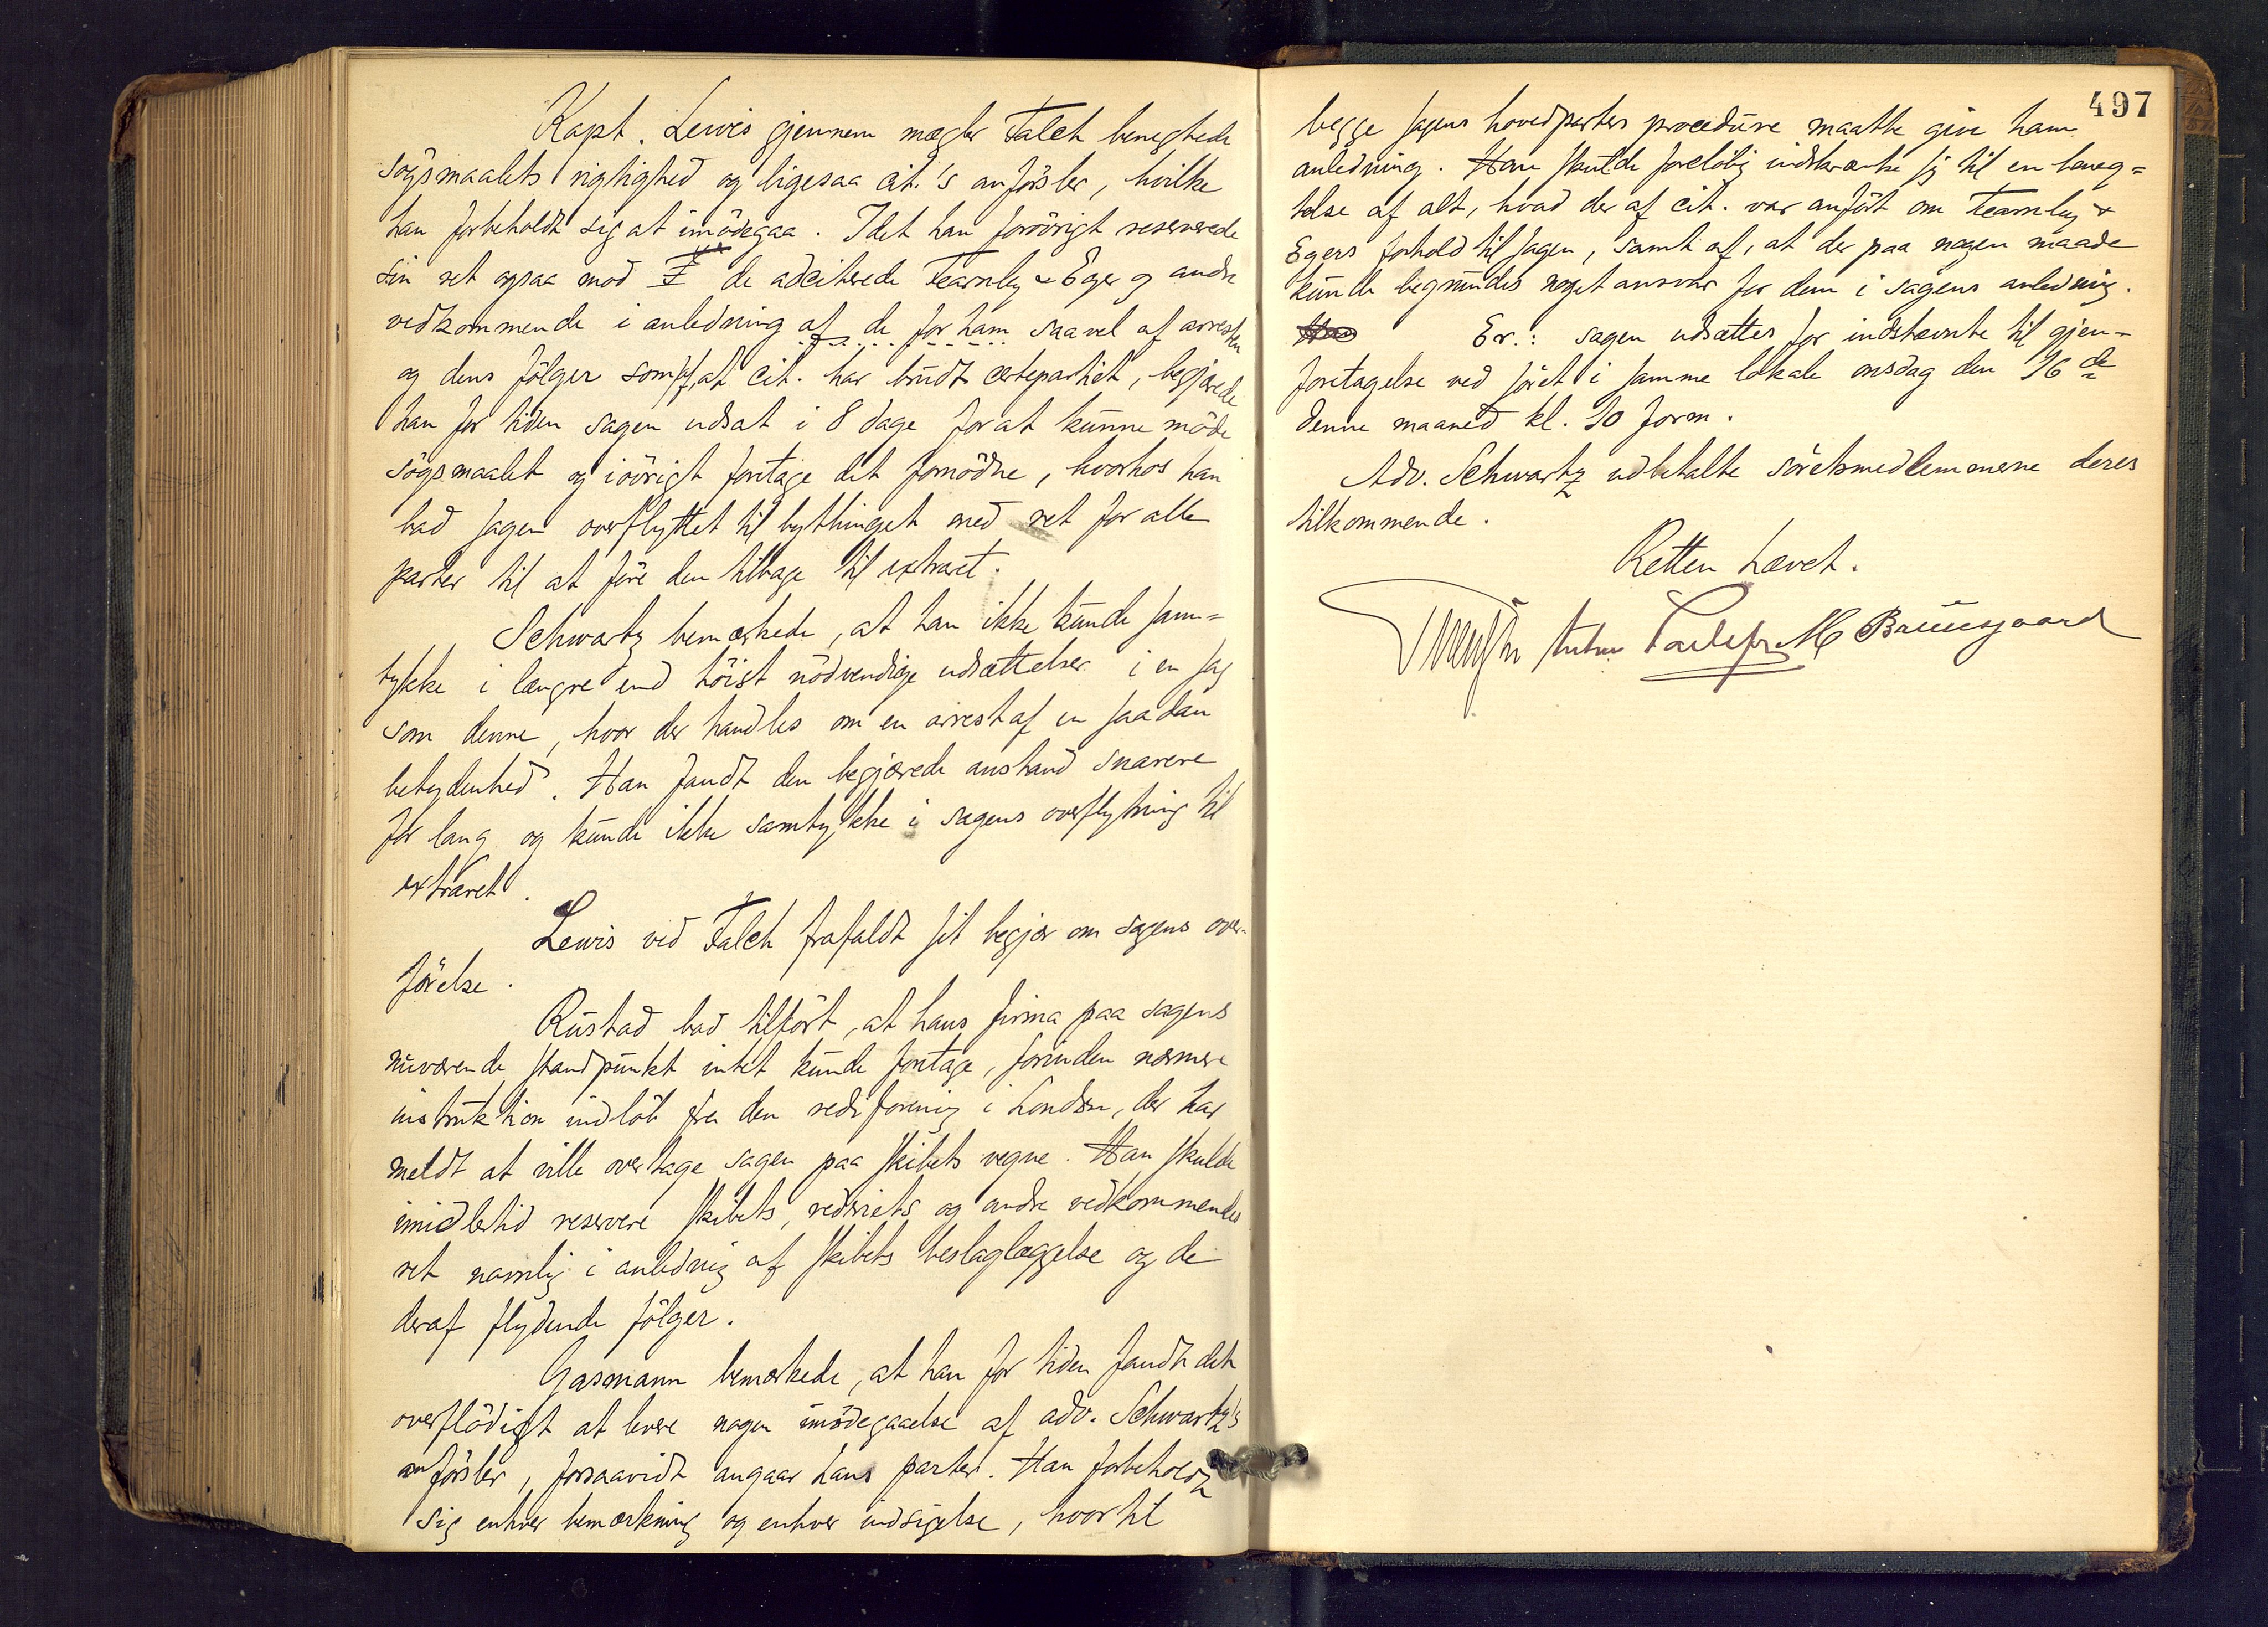 Kapt. Lewis gjennem megler Falck benegtede
søgsmaalets rigtighed og ligesaa cit.'s anførsler, hvilke
han forbeholdt sig at imødegaa. Idet han forøvrigt reserverede
sin ret ogsaa mod de adciterede Fearnley & Eger og andre
vedkommende i anledning af de for ham saavel af arresten
og dens følger som af, at cit. har brudt certepartiet, begjærede
han for tiden sagen udsat i 8 dage for at kunne møde
søgsmaalet og iøvrigt foretage det fornødne, hvorhos han
bad sagen overflyttet til bythinget med ret for alle
parter til at føre den tilbage til extraret.
Schwartz bemærkede, at han ikke kunde sam=
tykke i længre end høist nødvendige udsættelser i en sag
som denne, hvor der handles om en arrest af en saadan
betydenhed. Han fandt den begjærede anstand snarere
for lang og kunde ikke samtykke i sagens overflytning til
extraret.
Lewis ved Falck frafaldt sit begjær om sagens over-
førelse.
Rustad bad tilført, at hans firma paa sagens
nuværende standpunkt intet kunde foretage, forinden nærmere
instruktion indløb fra den rederforening i London, der har
meldt at ville overtage sagen paa skibets vegne. Han skulde
imidlertid reservere skibets, rederiets og andre vedkommendes
ret navnlig i anledning af skibets beslaglæggelse og de
deraf flydende følger.
Gasmann bemærkede, at han for tiden fandt det
overflødigt at levere nogen imødegaaelse af adv. Schwartz's
anførsler, forsaavidt angaar hans parter. Han forbeholdt
sig enhver bemærkning og enhver indsigelse, hvortil
497
begge sagens hovedparters procedure maatte give ham
anledning. Han skulde foreløbig indskrænke sig til en beneg=
telse af alt, hvad der af cit. var anført om Fearnley &
Egers forhold til sagen, samt af, at der paa nogen maade
kunde begrundes noget ansvar for dem i sagens anledning.
Er.: sagen udsættes for indstevnte til gjen=
foretagelse ved søret i samme lokale onsdag den 16de
denne maaned kl. 10 form.
Adv. Schwartz udbetalte søretsmedlemmerne deres
tilkommende.
Retten hævet.
M Bruusgaard